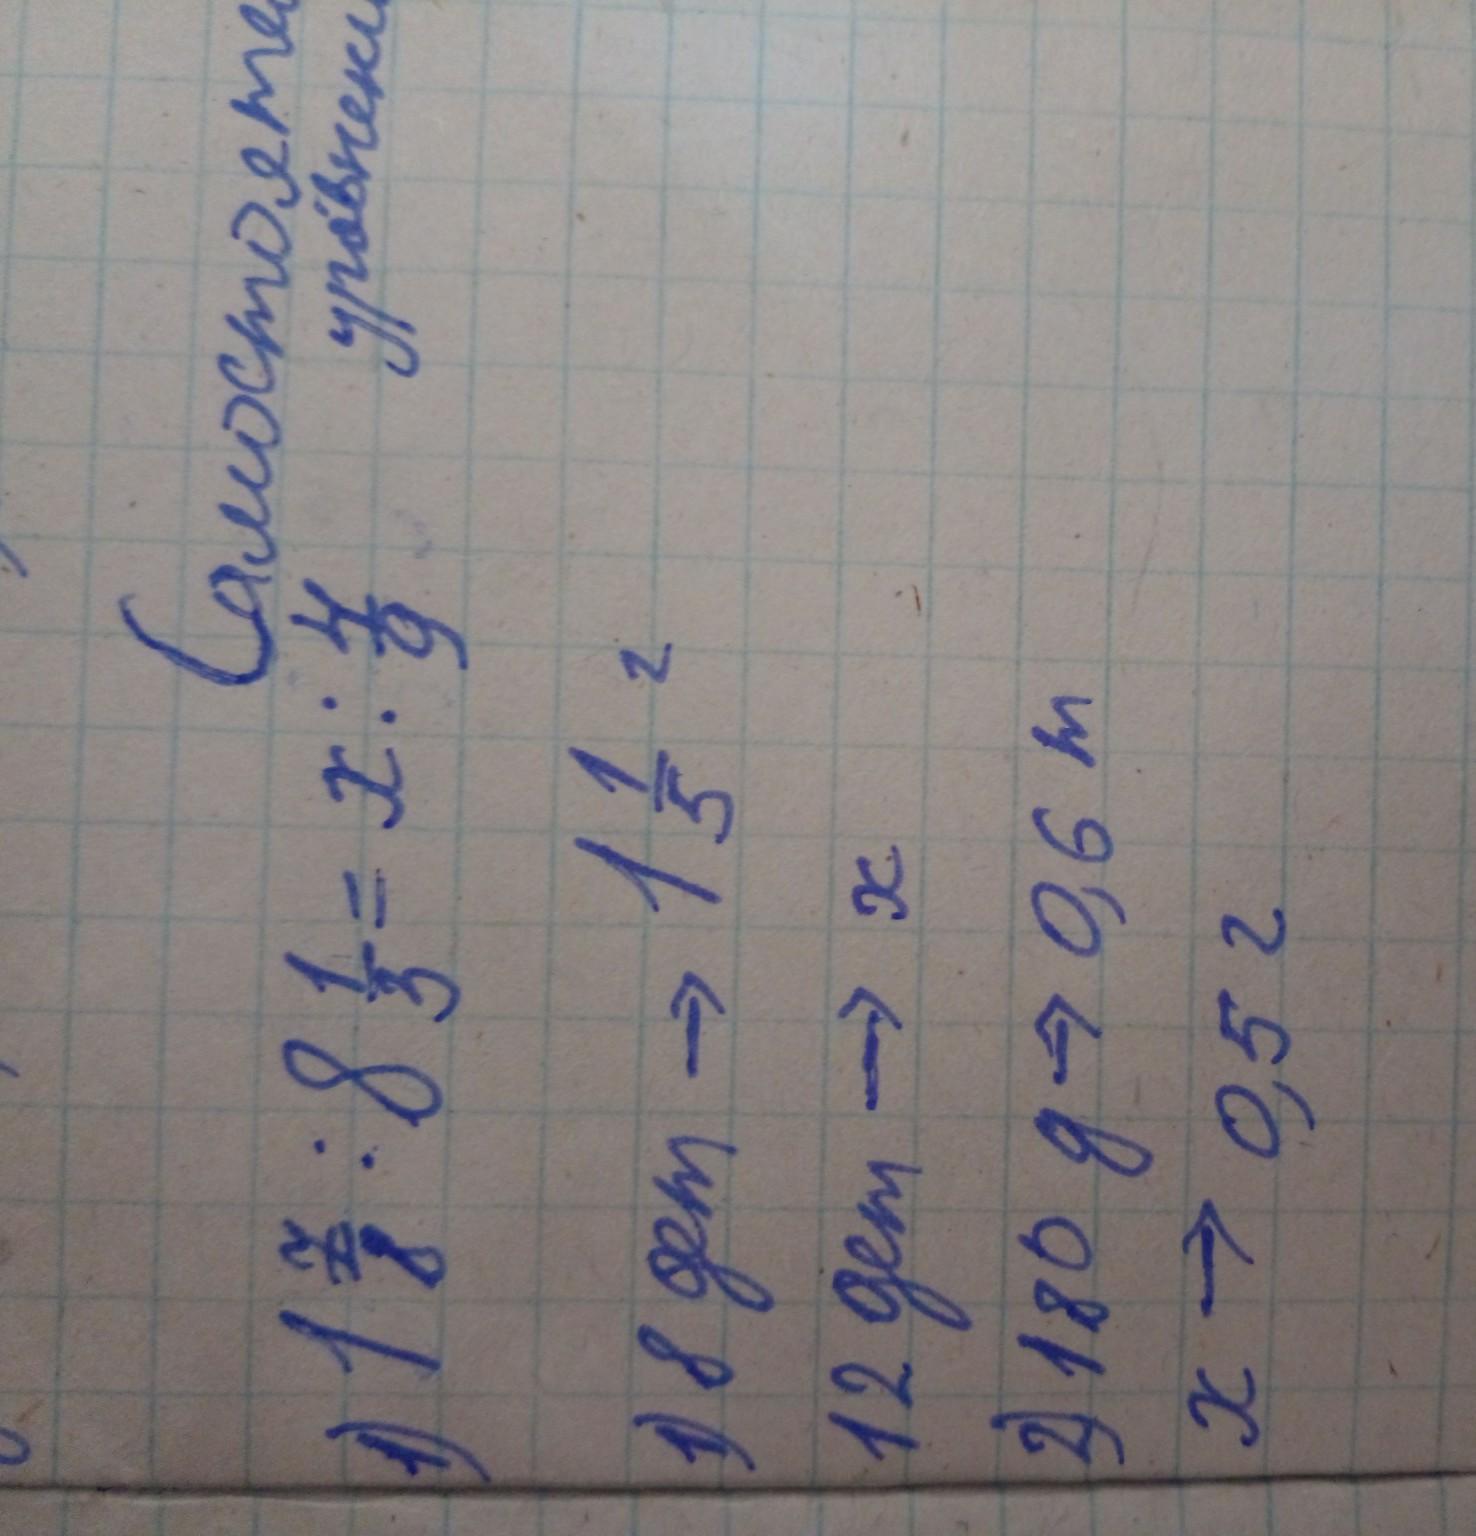 Самостояте
уравнени
1) 1 7/8 : 8 1/3 = x : 4/9
1) 8 дет → 1 1/5 г
12 дет → x
2) 180 д → 0,6 т
x → 0,5 г